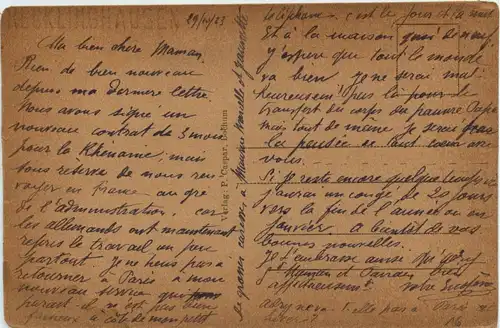 RECKLINGHAUSEN
29/10/23
Ma bien chère Maman.
Rien de bien nouveau
depuis ma dernière lettre
Nous avons signé un
nouveau contrat de 3 mois
pour la Rhénanie, mais
sous réserve de nous ren
voyer en france au gré
de l'administration, car
les allemands ont maintenant
repris le travail un peu
partout. Je ne puis pas
retourner à Paris à mon
nouveau service qui
parait-il n'est pas bien
fameux à côté de mon petit
Verlag: P. Caspar, Bochum
de grosses caresses à Maurice Marcelle et
téléphones c'est le jour et la nuit
Et à la maison quoi de neuf
J'espère que tout le monde
va bien Je ne serai mal
heureusement pas là pour le
transfert du corps du pauvre Papa
mais tout de même Je serai par
la pensée de tout cœur avec
vous.
Si je reste encore quelque temps ici
J'aurai un congé de 20 jours
vers la fin de l'année ou en
Janvier à bientôt de vos
bonnes nouvelles.
Je t'embrasse ainsi que
Maman et Parrain bien
affectueusement. votre
elle pas à Paris